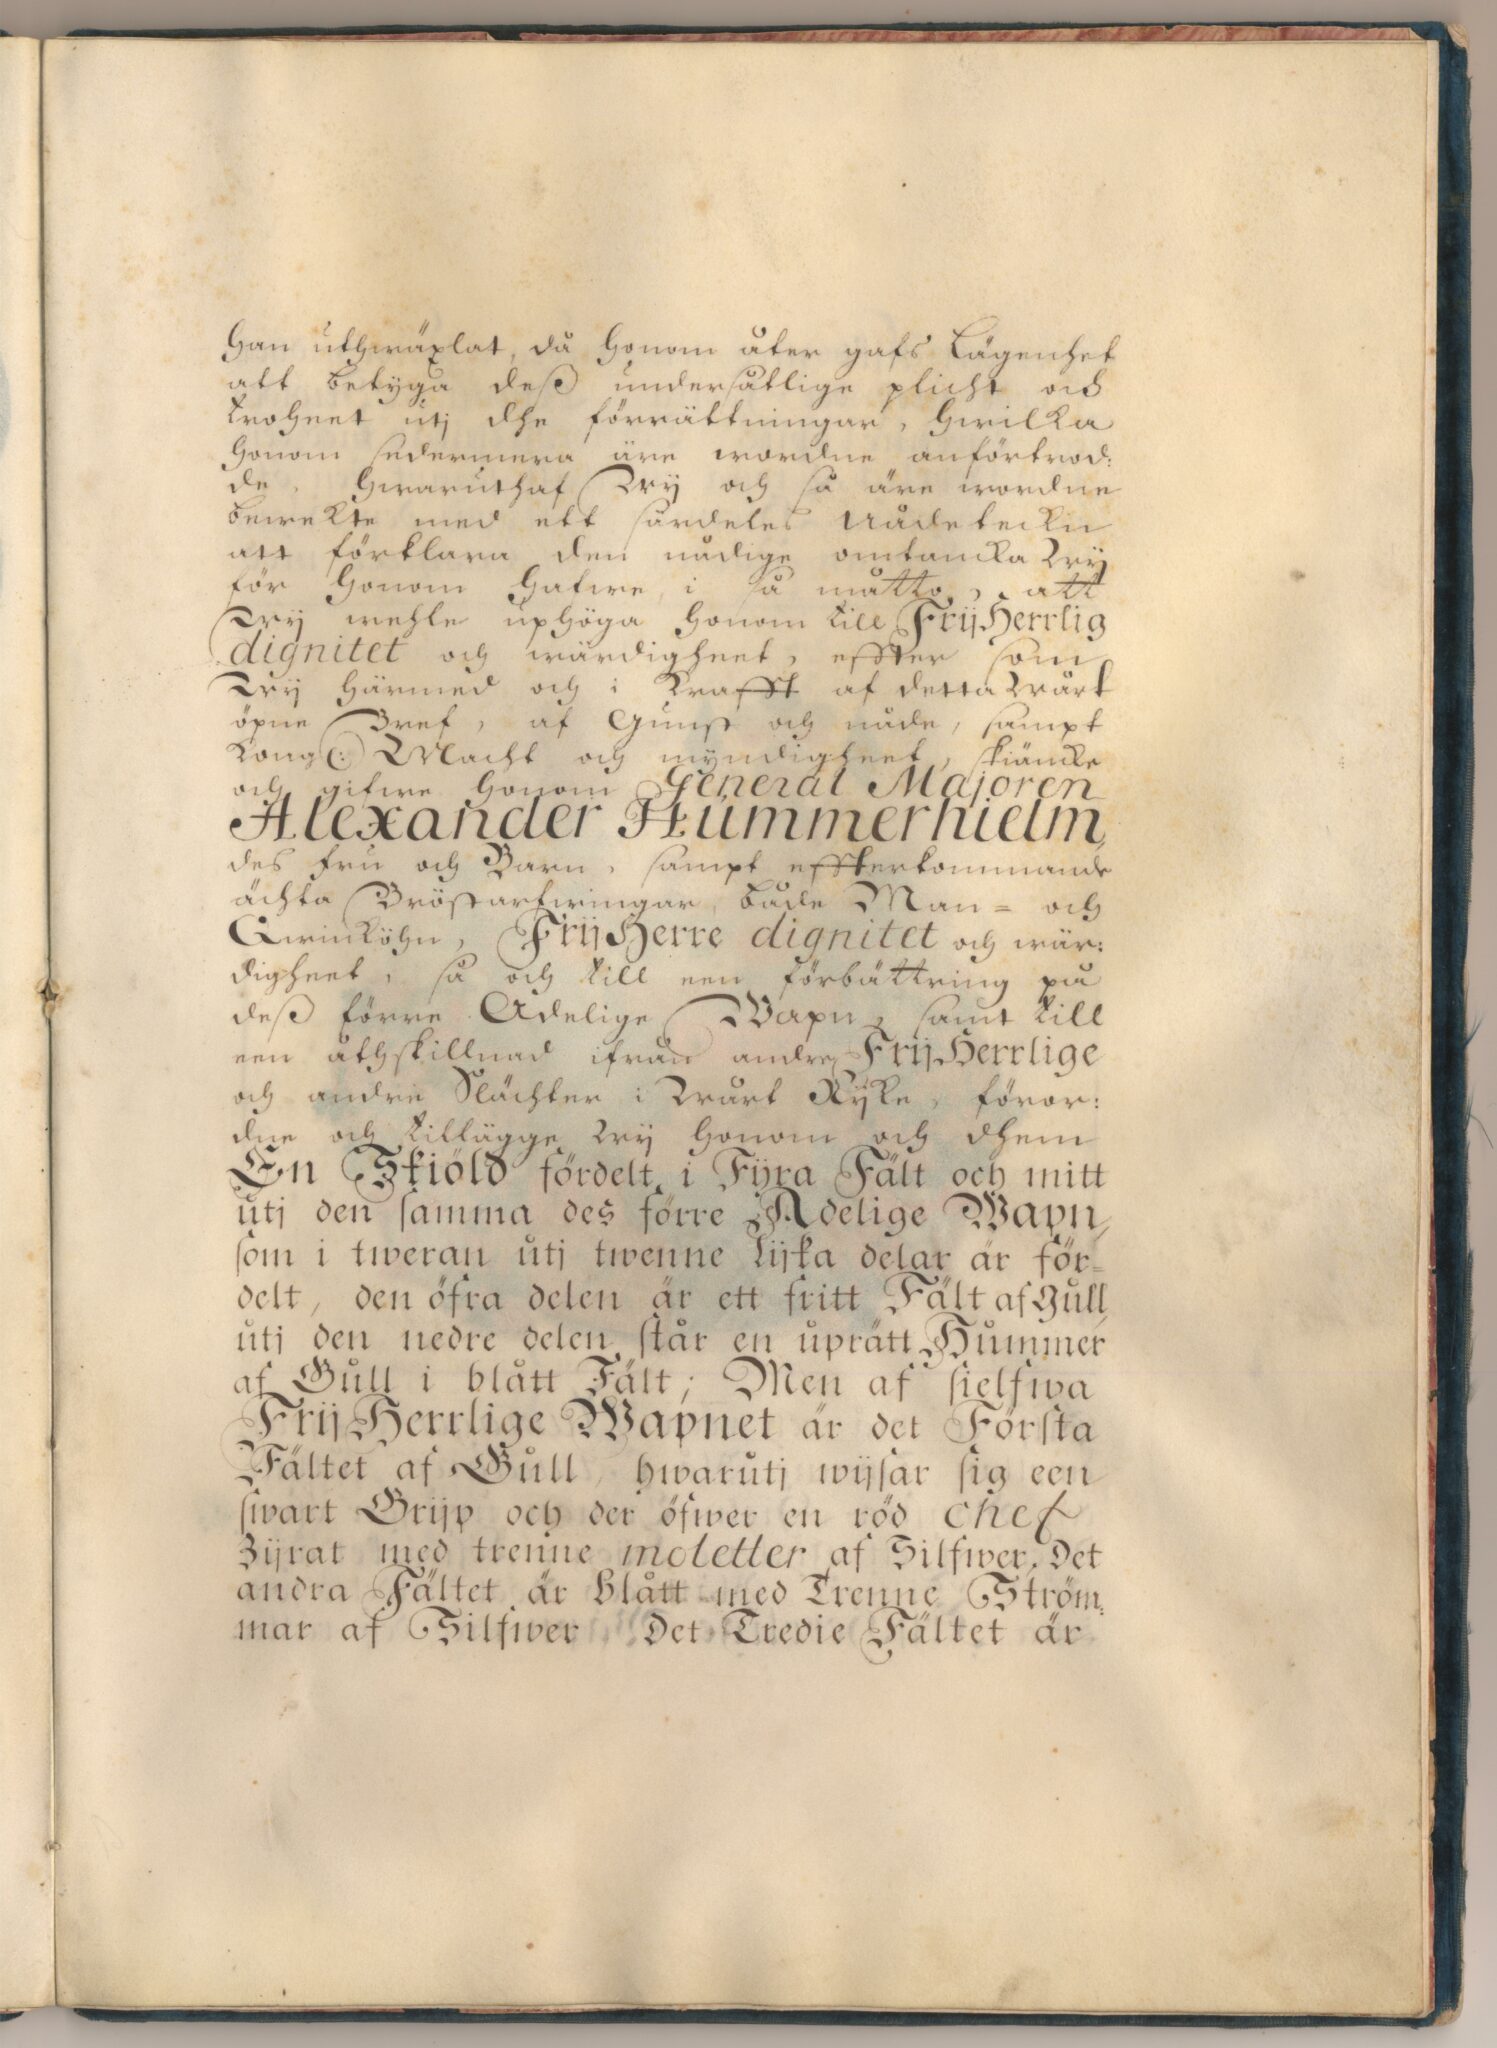 han uthwäxlat, då honom åter gafs Lägenhet
att betyga deß undersåtlige plicht och
troheet utj dhe förrättningar, hwilka
honom sedermera äre wordne anförtrod:
de, hwaruthaf Wÿ och så äre wordne
bewekte med ett särdeles Nådetecken
att förklara den nådige omtancka Wÿ
för honom hafwe, i så måtto, att
Wÿ wehle uphöga honom till FrijHerrlig
dignitet och wärdigheet, effter som
Wÿ härmed och i krafft af detta Wårt
öpne Bref, af Gunst och nåde, sampt
Kongl: Macht och myndigheet, skiäncke
och gifwe honom General Majoren
Alexander Hummerhielm,
des fru och Barn, sampt effterkommande
ächta Bröstarfwingar, både Man= och
Qwinköhn, FrijHerre dignitet och wär:
digheet, så och till een förbättring på
deß förre Adelige Wapn, samt till
een åthskillnad ifrån andre FrijHerrlige
och andre Slächter i Wårt Rÿke,föror:
dne och tillägge Wÿ honom och dhem
En Skiöld fördelt i Fÿra Fält och mitt
utj den samma des förre Adelige Wapn,
som i tweran utj twenne Lijka delar är för=
delt, den öfra delen är ett fritt Fält af Gull,
utj den nedre delen står en uprätt Hummer
af Gull i blått Fält; Men af sielfwa
FrijHerrlige Wapnet är det Första
Fältet af Gull, hwarutj wijsar sig een
swart Grijp och der öfwer en röd chef
Zijrat med trenne moletter af Silfwer. Det
andra Fältet är blått med Trenne Ström:
mar af Silfwer. Det Tredie Fältet är